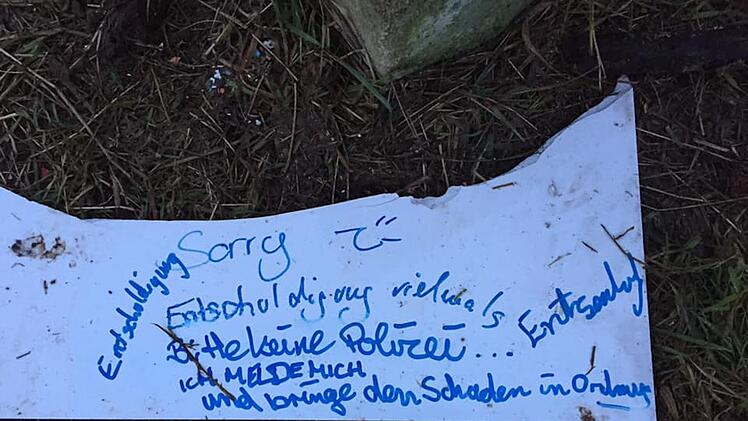 Entschuldigung
Sorry
Entschuldigung vielmals
Bitte keine Polizei...
ICH MELDE MICH
und bringe den Schaden in Ordnung